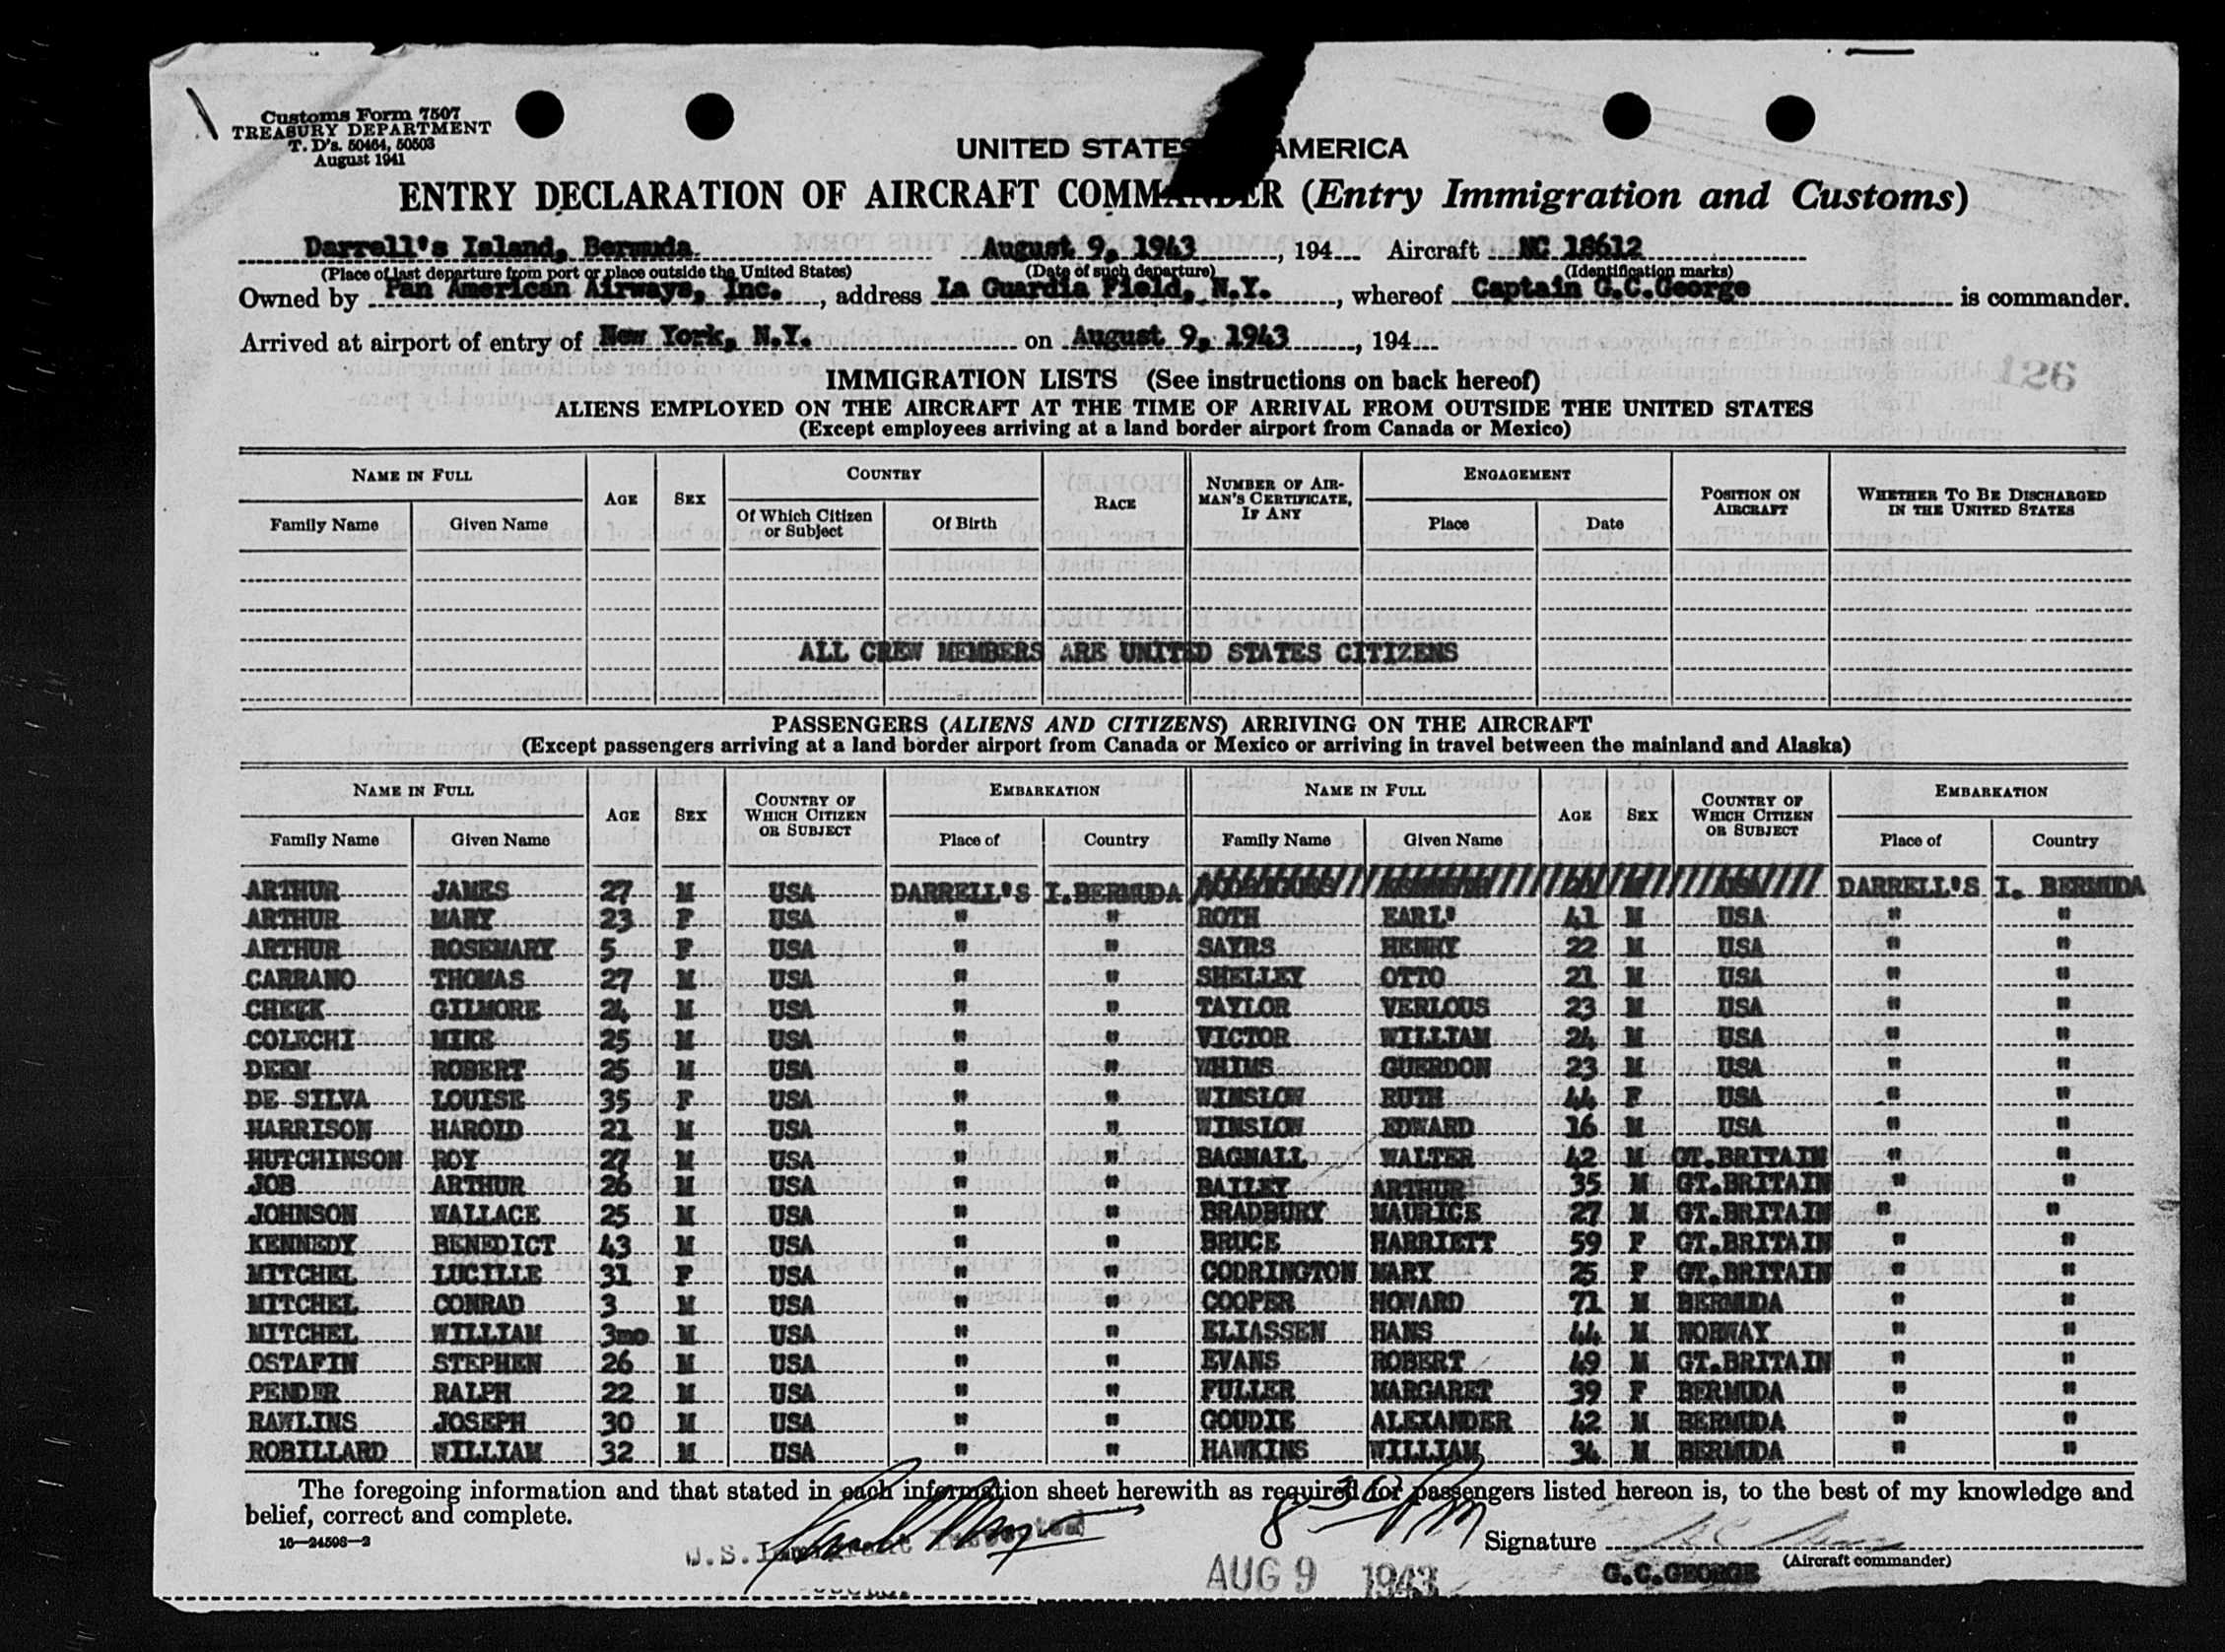 Customs Form 7507
TREASURY DEPARTMENT
T. D's. 50464, 50503
August 1941
UNITED STATES AMERICA
ENTRY DECLARATION OF AIRCRAFT COMMANDER (Entry Immigration and Customs)
Darrell's Island, Bermuda August 9, 1943, 194 Aircraft NC 18612
(Place of last departure from port or place outside the United States) (Date of such departure) (Identification marks)
Owned by Pan American Airways, Inc., address La Guardia Field, N.Y., whereof Captain G.C.George is commander.
Arrived at airport of entry of New York, N.Y. on August 9, 1943, 194
126
IMMIGRATION LISTS (See instructions on back hereof)
ALIENS EMPLOYED ON THE AIRCRAFT AT THE TIME OF ARRIVAL FROM OUTSIDE THE UNITED STATES
(Except employees arriving at a land border airport from Canada or Mexico)
NAME IN FULL AGE SEX COUNTRY RACE NUMBER OF AIRMAN'S CERTIFICATE, IF ANY ENGAGEMENT POSITION ON AIRCRAFT WHETHER TO BE DISCHARGED IN THE UNITED STATES
Family Name Given Name Of Which Citizen or Subject Of Birth Place Date
ALL CREW MEMBERS ARE UNITED STATES CITIZENS
PASSENGERS (ALIENS AND CITIZENS) ARRIVING ON THE AIRCRAFT
(Except passengers arriving at a land border airport from Canada or Mexico or arriving in travel between the mainland and Alaska)
NAME IN FULL AGE SEX COUNTRY OF WHICH CITIZEN OR SUBJECT EMBARKATION NAME IN FULL AGE SEX COUNTRY OF WHICH CITIZEN OR SUBJECT EMBARKATION
Family Name Given Name Place of Country Family Name Given Name Place of Country
ARTHUR JAMES 27 M USA DARRELL'S I. BERMUDA DARRELL'S I. BERMUDA
ARTHUR MARY 23 F USA " " ROTH EARL' 41 M USA " "
ARTHUR ROSEMARY 5 F USA " " SAYRS HENRY 22 M USA " "
CARRANO THOMAS 27 M USA " " SHELLEY OTTO 21 M USA " "
CHEEK GILMORE 24 M USA " " TAYLOR VERLOUS 23 M USA " "
COLECHI MIKE 25 M USA " " VICTOR WILLIAM 24 M USA " "
DEEM ROBERT 25 M USA " " WHIMS GUERDON 23 M USA " "
DE SILVA LOUISE 35 F USA " " WINSLOW RUTH 44 F USA " "
HARRISON HAROLD 21 M USA " " WINSLOW EDWARD 16 M USA " "
HUTCHINSON ROY 27 M USA " " BAGNALL WALTER 42 M GT.BRITAIN " "
JOB ARTHUR 26 M USA " " BAILEY ARTHUR 35 M GT.BRITAIN " "
JOHNSON WALLACE 25 M USA " " BRADBURY MAURICE 27 M GT.BRITAIN " "
KENNEDY BENEDICT 43 M USA " " BRUCE HARRIETT 59 F GT.BRITAIN " "
MITCHEL LUCILLE 31 F USA " " CODRINGTON MARY 25 F GT.BRITAIN " "
MITCHEL CONRAD 3 M USA " " COOPER HOWARD 71 M BERMUDA " "
MITCHEL WILLIAM 3mo M USA " " ELIASSEN HANS 44 M NORWAY " "
OSTAFIN STEPHEN 26 M USA " " EVANS ROBERT 49 M GT.BRITAIN " "
PENDER RALPH 22 M USA " " FULLER MARGARET 39 F BERMUDA " "
RAWLINS JOSEPH 30 M USA " " GOUDIE ALEXANDER 42 M BERMUDA " "
ROBILLARD WILLIAM 32 M USA " " HAWKINS WILLIAM 34 M BERMUDA " "
The foregoing information and that stated in each information sheet herewith as required for passengers listed hereon is, to the best of my knowledge and
belief, correct and complete.
16—24598—2
8 30 PM
Signature
(Aircraft commander)
U.S. Immigrant Inspector
AUG 9 1943
G.C.GEORGE